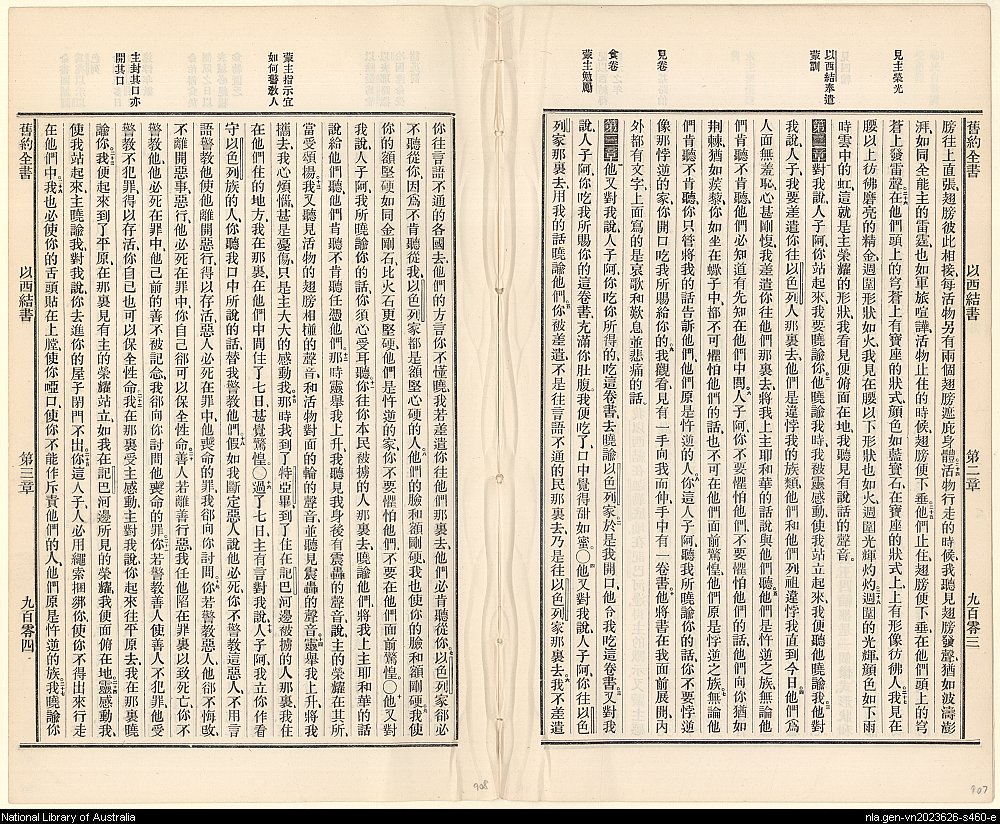 見主榮光
以西結奉遣
蒙訓
見卷
食卷
蒙主勉勵
舊約全書 以西結書 第二章 九百零三
膀往上直張翅膀彼此相接、每活物另有兩個翅膀遮庇身體、活物行走的時候、我聽見翅膀發聲、猶如波濤澎
湃、如同全能主的雷霆、也如軍旅喧譁、活物止住的時候、翅膀便下垂、他們止住翅膀便下垂、在他們頭上的穹
蒼上發雷聲、在他們頭上的穹蒼上有寶座的狀式、顏色如藍寶石、在寶座的狀式上、上有形像彷彿人、我見在
腰以上彷彿磨亮的精金、週圍形狀如火、我見在腰以下形狀也如火、週圍光輝灼灼、週圍的光輝顏色如下雨
時雲中的虹、這就是主榮耀的形狀、我看見便俯面在地、我聽見有說話的聲音。
第二章 對我說、人子阿、你站起來、我要曉諭你、他曉諭我時、我被靈感動、使我站立起來、我便聽他曉諭我、他對
我說、人子、我要差遣你往以色列人那裏去、他們是違悖我的族類、他們和他們列祖違悖我直到今日、他們爲
人面無羞恥、心甚剛愎、我差遣你往他們那裏去、將我上主耶和華的話說與他們聽、他們是悖逆之族、無論他
們肯聽不肯聽、他們必知道有先知在他們中間、人子阿、你不要懼怕他們、不要懼怕他們的話、他們向你猶如
荆棘、猶如蒺藜、你如坐在蠍子中、都不可懼怕他們的話、也不可在他們面前驚惶、他們原是悖逆之族、無論他
們肯聽不肯聽、你只管將我的話告訴他們、他們原是悖逆的人、你這人子阿、聽我所曉諭你的話、你不要悖逆
像那悖逆的家、你開口吃我所賜給你的、我觀看、見有一手向我面伸、手中有一卷書、他將書在我面前展開、內
外都有文字、上面寫的是哀歌和歎息並悲痛的話。
第三章 他又對我說、人子阿、你吃你所得的、吃這卷書、去曉諭以色列家、於是我開口、他令我吃這卷書、又對我
說、人子阿、你吃我所賜你的這卷書、充滿你肚腹、我便吃了、口中覺得甜如蜜、〇他又對我說、人子阿、你往以色
列家那裏去、用我的話曉諭他們、你被差遣、不是往言語不通的民那裏去、乃是往以色列家那裏去、我不差遣
蒙主指示宜
如何警教人
主封其口亦
開其口
你往言語不通的各國去、他們的方言你不懂曉、我若差遣你往他們那裏去、他們必肯聽從你、以色列家卻必
不聽從你、因爲不肯聽從我、以色列家都是額堅心硬的人、他們的臉和額剛硬、我也使你的臉和額剛硬、我使
你的額堅硬、如同金剛石、比火石更堅硬、他們是悖逆的家、你不要懼怕他們、不要在他們面前驚惶、〇他又對
我說、人子阿、我所曉諭你的話、你須心受耳聽、你往你本民被擄的人那裏去、曉諭他們、將我上主耶和華的話
說給他們聽、他們肯聽不肯聽、任憑他們、那時靈舉我上升、我聽見我身後有震轟的聲音、說、主的榮耀在其所、
當受頌揚、我又聽見活物的翅膀相撞的聲音、和活物對面的輪的聲音、並聽見震轟的聲音、靈舉我上升、將我
攜去、我心煩惱、甚是憂傷、只是主大大的感動我、那時我到了特亞畢、到了住在記巴河邊被擄的人那裏、我住
在他們住的地方、我在那裏、在他們中間住了七日、甚覺驚惶、〇過了七日、主有言對我說、人子阿、我立你作看
守以色列族的人、你聽我口中所說的話、替我警教他們、假如我斷定惡人說、他必死、你不警教這惡人、不用言
語警教他、使他離開惡行、得以存活、惡人必死在罪中、他喪命的罪、我卻向你討問、你若警教惡人、他卻不悔改、
不離開惡事惡行、他必死在罪中、你自己卻可以保全性命、善人若離善行惡、我任他陷在罪裏以致死亡、你不
警教他、他必死在罪中、他已前的善不被記念、我卻向你討問他喪命的罪、你若警教善人、使善人不犯罪、他受
警教不犯罪、得以存活、你自己也可以保全性命、我在那裏受主感動、主對我說、你起來往平原去、我在那裏曉
諭你、我便起來、到了平原、在那裏見有主的榮耀站立、如我在記巴河邊所見的榮耀、我便面俯在地、靈感動我、
使我站起來、主曉諭我、對我說、你去進你的屋子、閉門不出、你這人子、人必用繩索捆綁你、使你不得出來行走
在他們中、我也必使你的舌頭貼在上膛、使你啞口、使你不能作斥責他們的人、他們原是悖逆的族、我曉諭你
舊約全書 以西結書 第三章 九百零四
908
907
National Library of Australia
nla.gen-vn2023626-s460-e